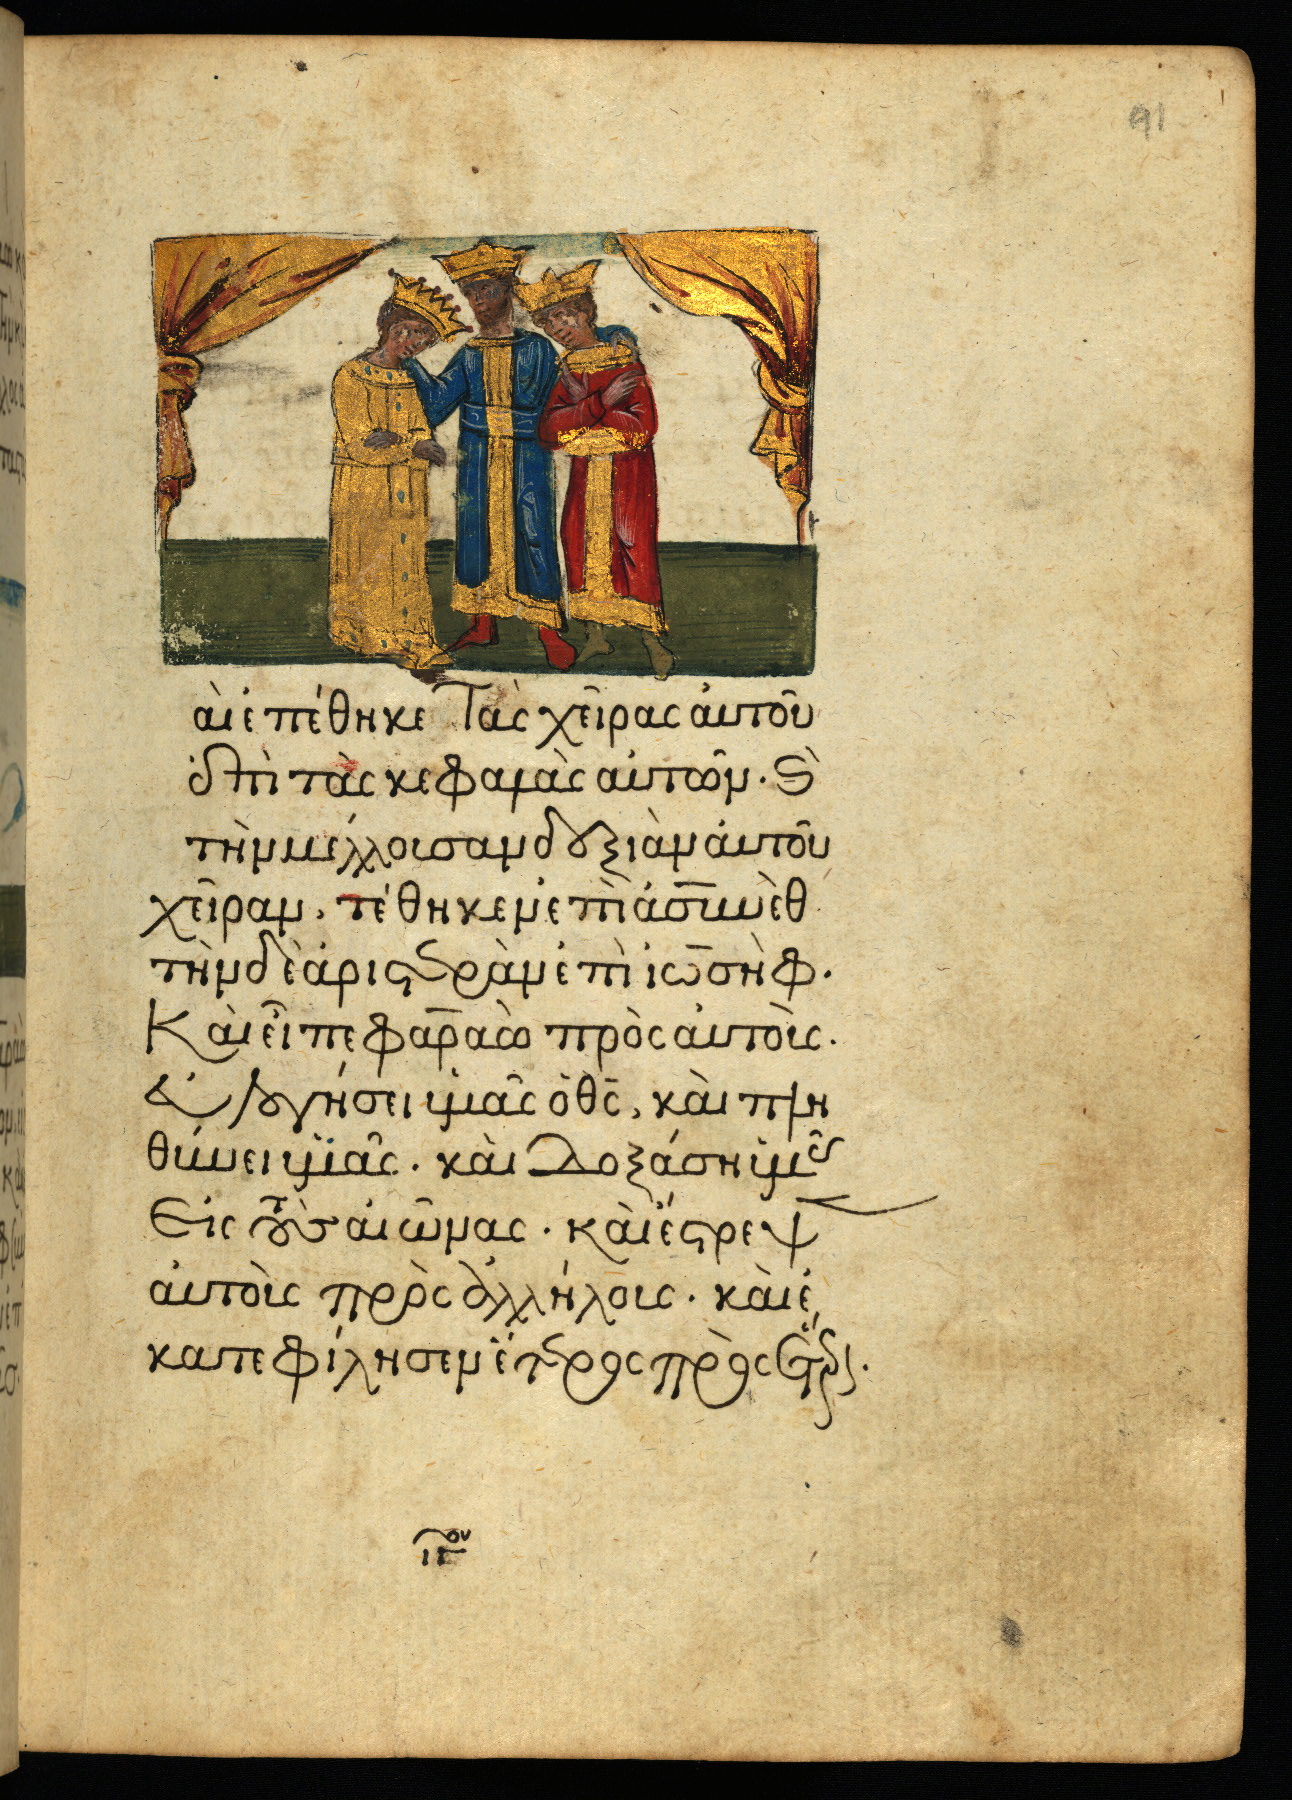 91
ὰι ἐπέθηκε Τὰς χεῖρας ἀυτοῦ
ἐπὶ τὰς κεφαλὰς αὐτῶν. Ϛ̀
τὴν μέλλουσαν δεξιὰν ἀυτοῦ
χεῖραν, τέθηκεν ἐπὶ ἀσυνὲθ
τὴν δὲ ἀριστερὰν ἐπὶ ἰωσὴφ.
Κὰι εἶπε φαραὼ πρὸς ἀυτοὺς.
ἐυλογήσει ὑμᾶς ὁ θς, κὰι πλη
θύνει ὑμᾶς. κὰι δοξάση ὑμᾶς
Εἰς τοὺς αἰῶνας. κὰι έστρεψ
ἀυτοὺς πρὸς ἀλλήλους. κὰι ἐ
κατεφίλησεν ἕτερος πρὸς ἕτερον.
ιγον